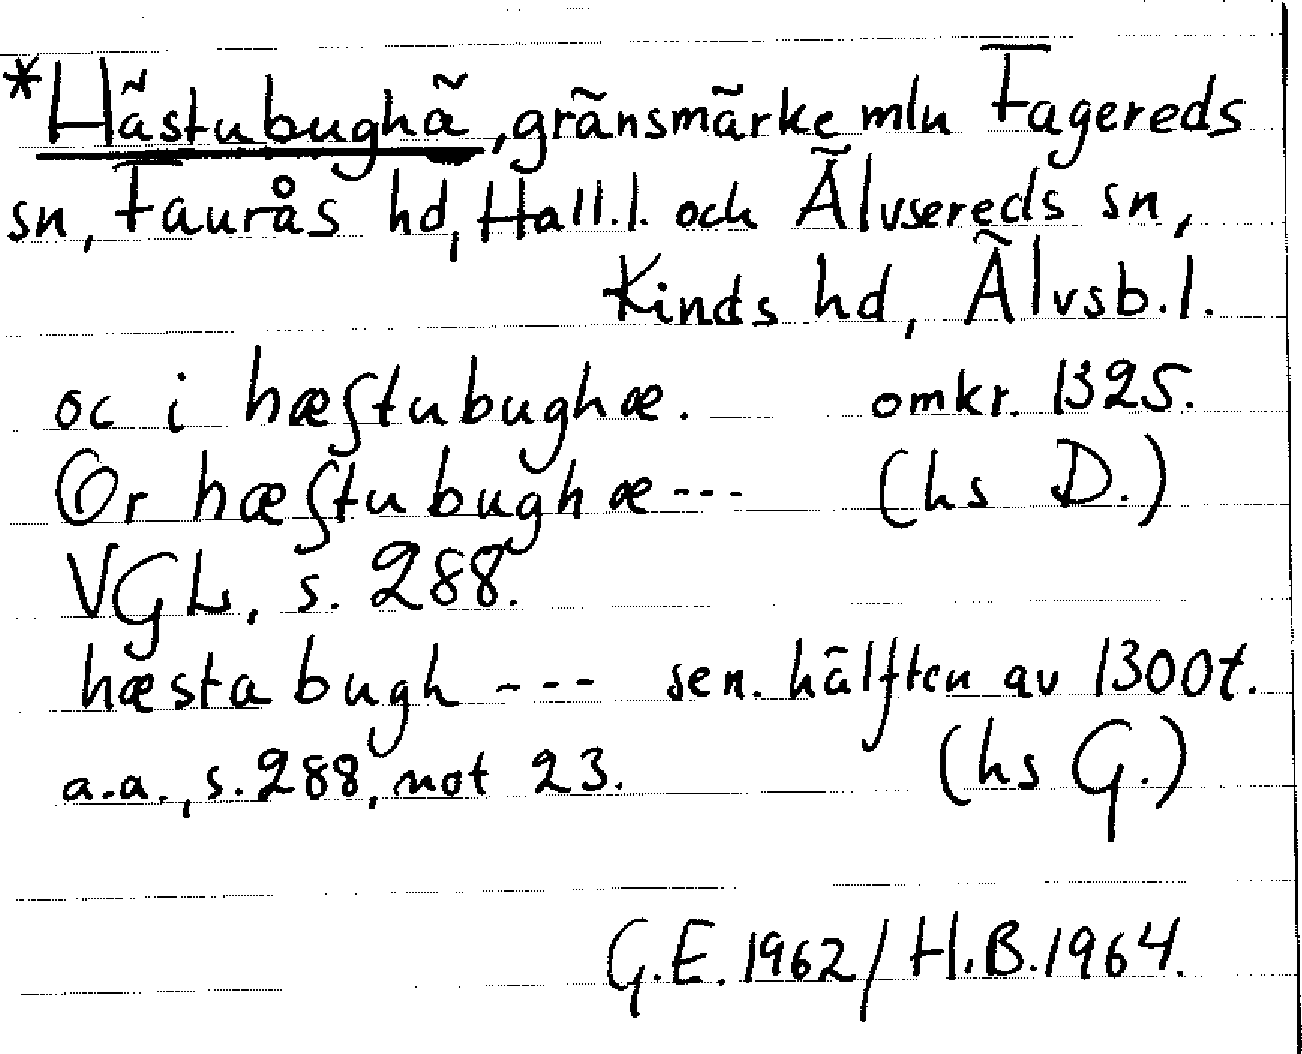 *Hästubughä, gränsmärke mln Fagereds
sn, Faurås hd, Hall.l. och Älvsereds sn,
Kinds hd, Älvsb.l.
oc i hæſtubughæ. omkr. 1325.
Or hæſtubughæ --- (hs D.)
VGL, s. 288.
hæsta bugh --- sen. hälften av 1300t.
a.a., s. 288, not 23. (hs G.)
G.E. 1962/H.B. 1964.